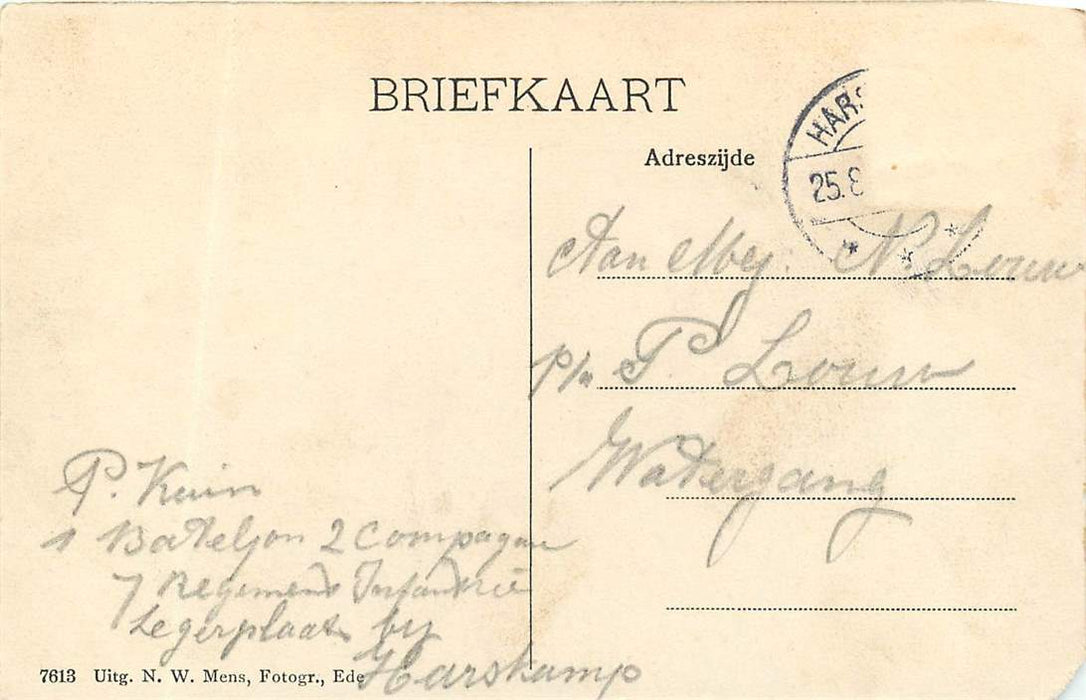 BRIEFKAART
Adreszijde
HARS
25.8
Aan Mej. N. Louw
p/a P. Louw
Watergang
P. Kuin
1 Bateljon 2 Compagnie
7 Regiment Infantrie
Legerplaats by
Harskamp
7613 Uitg. N. W. Mens, Fotogr., Ede